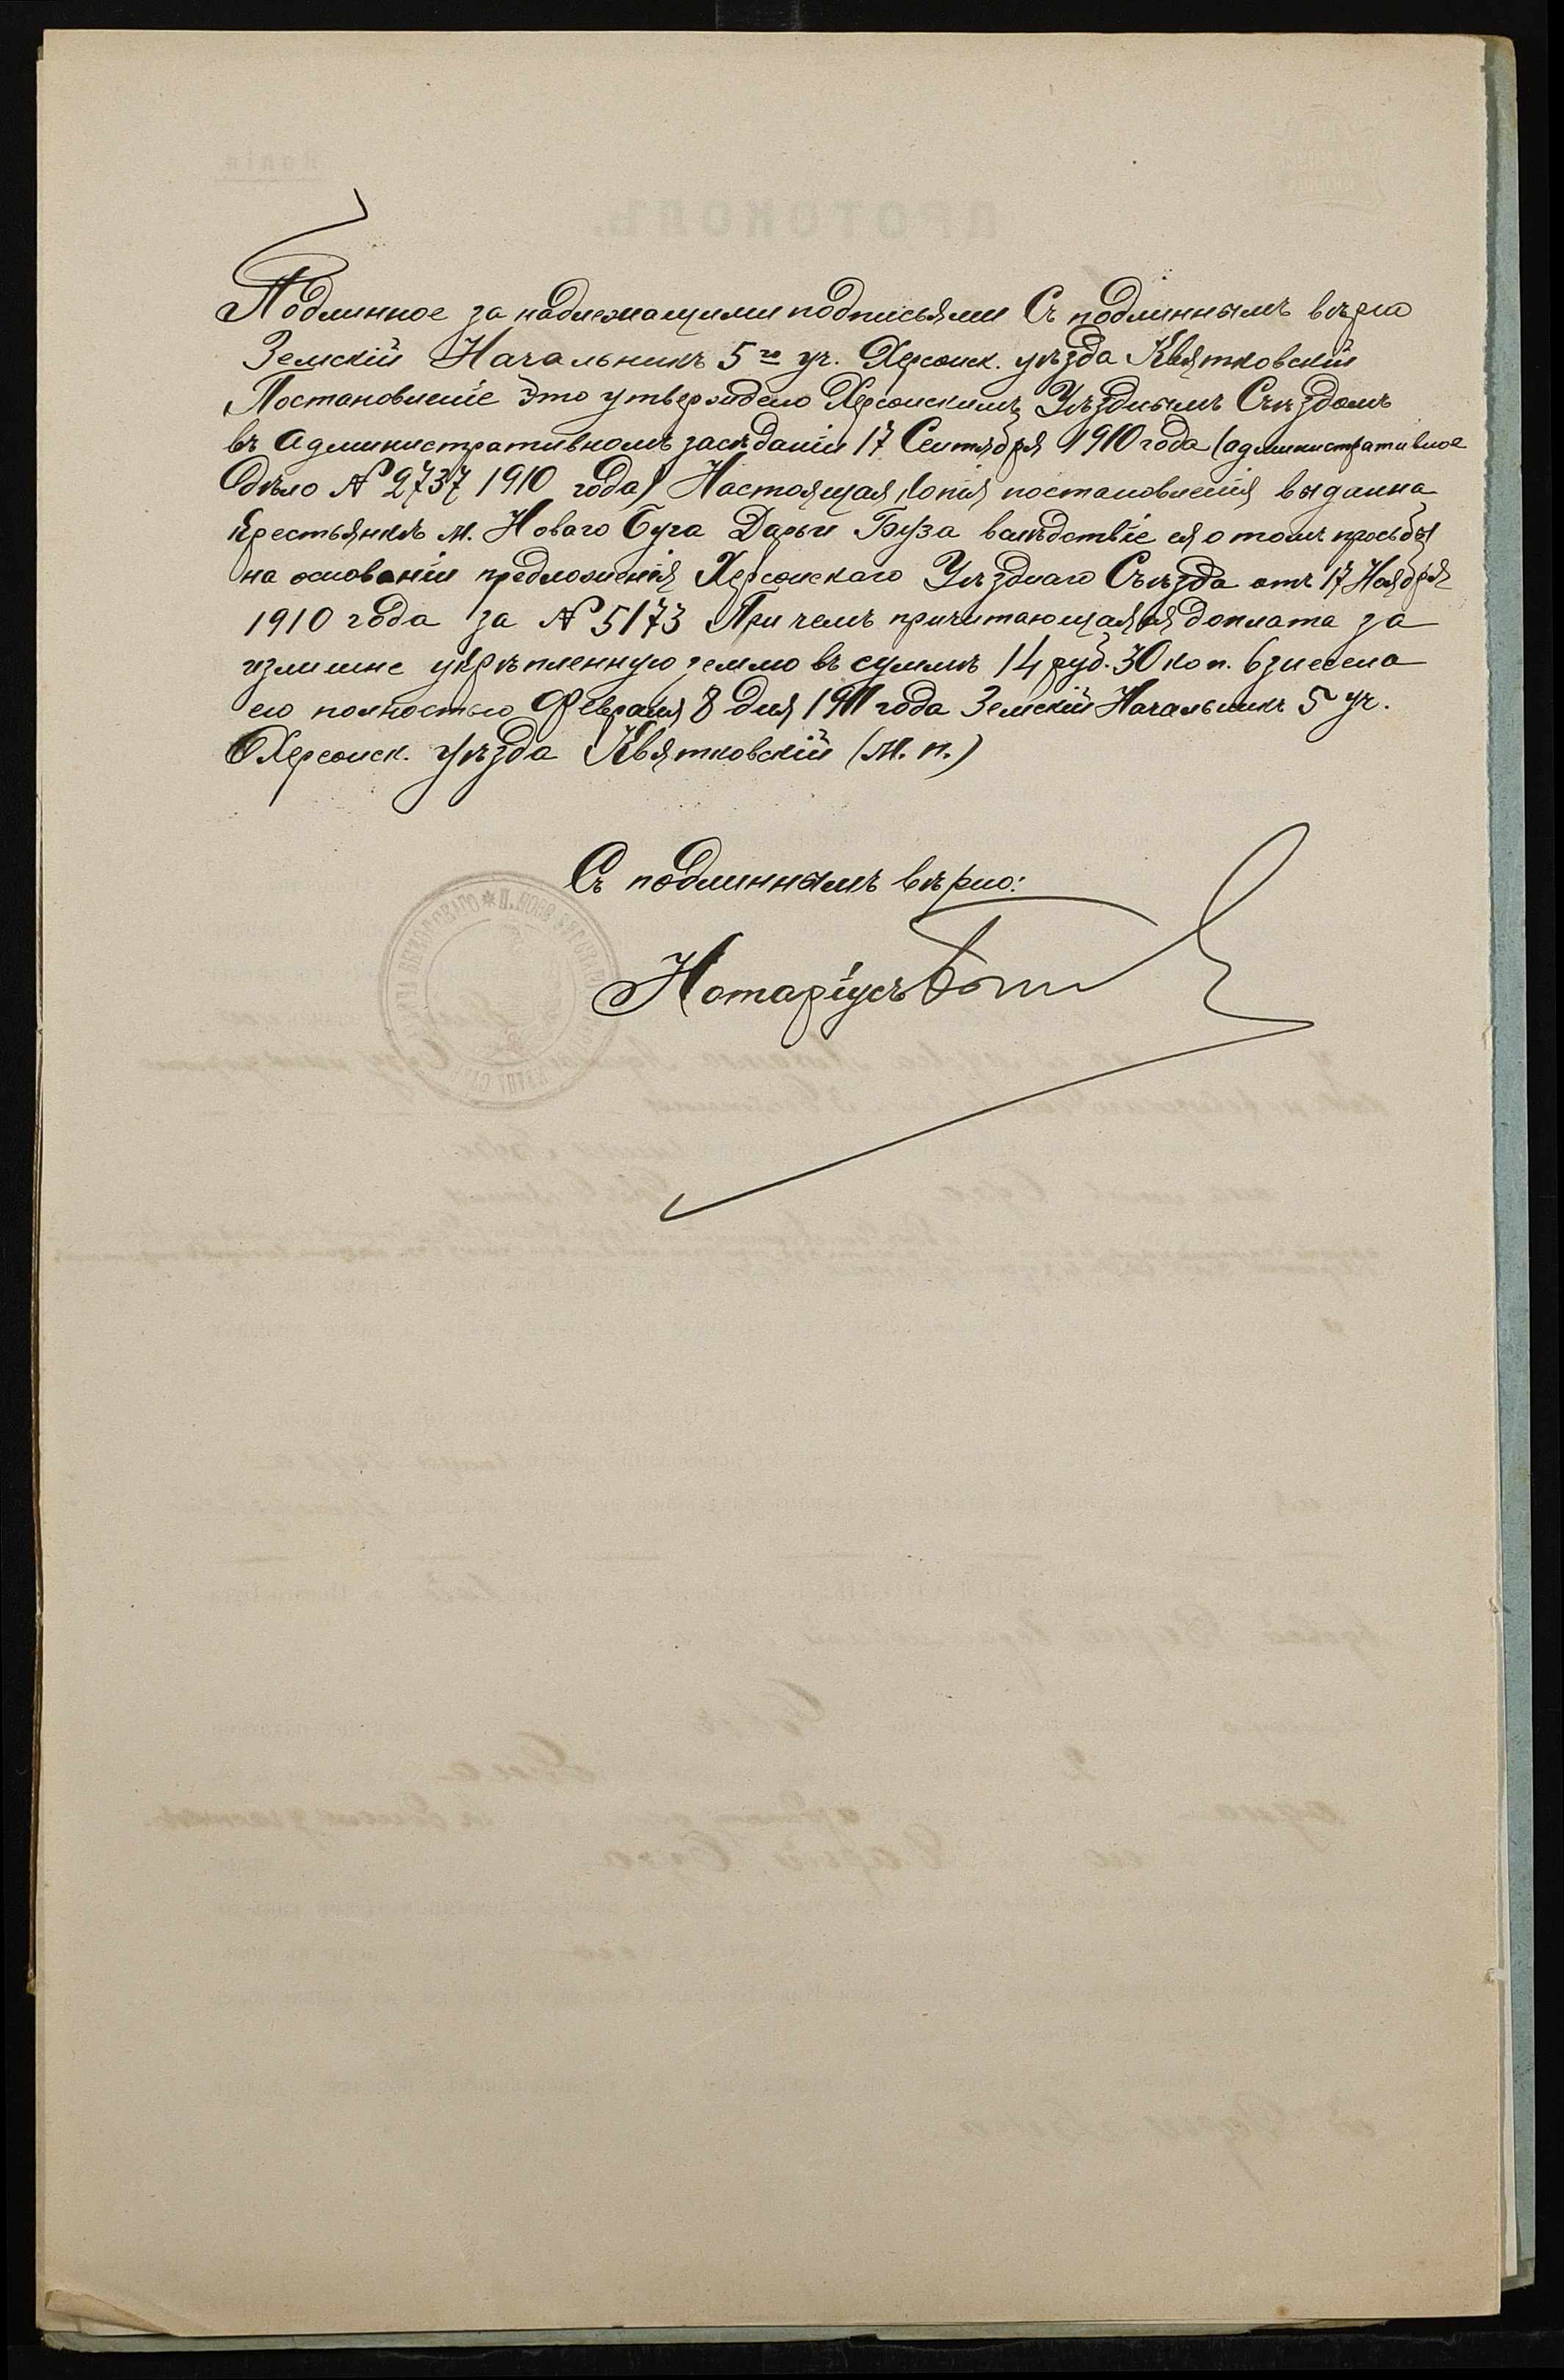 Подлинное за надлежащими подписями Съ подлиннымъ вѣрно
Земскій Начальникъ 5го уч. Херсонск. уѣзда Квятковскій
Постановленіе это утверждено Херсонскимъ Уѣзднымъ Съѣздомъ
въ административномъ засѣданіи 17 Сентября 1910 года (административное
дѣло № 2737 1910 года) Настоящая копія постановленія выданна
крестьянкѣ м. Новаго Буга Дарьи Буза вслѣдствіе ея о томъ просьбы
на основаніи предложенія Херсонскаго Уѣзднаго Съѣзда отъ 17 Ноября
1910 года за № 5173 При чемъ причитающаяся доплата за
излишне укрѣпленную землю въ суммѣ 14 руб. 30 коп. взнесена
ею полностью Февраля 8 дня 1911 года Земскій Начальникъ 5 уч.
Херсонск. уѣзда Квятковскій (М. п.)
Съ подлиннымъ вѣрно:
Нотаріусъ